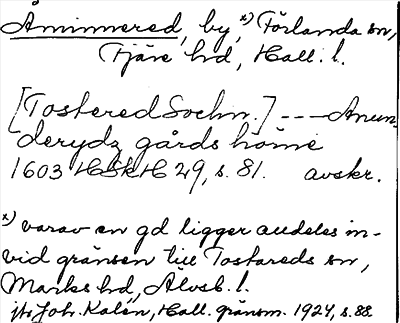 Åminnered, by,x) Förlanda sn,
Fjäre hd, Hall. l.
[Tostered Sochn.] --- Anun-
derydz gårds höme
1603 HSkH 29, s. 81. avskr.
x) varav en gd ligger alldeles in-
vid gränsen till Tostareds sn,
Marks hd, Älvsb. l.
jfr Joh. Kalén, Hall. gränsm. 1924, s. 88.